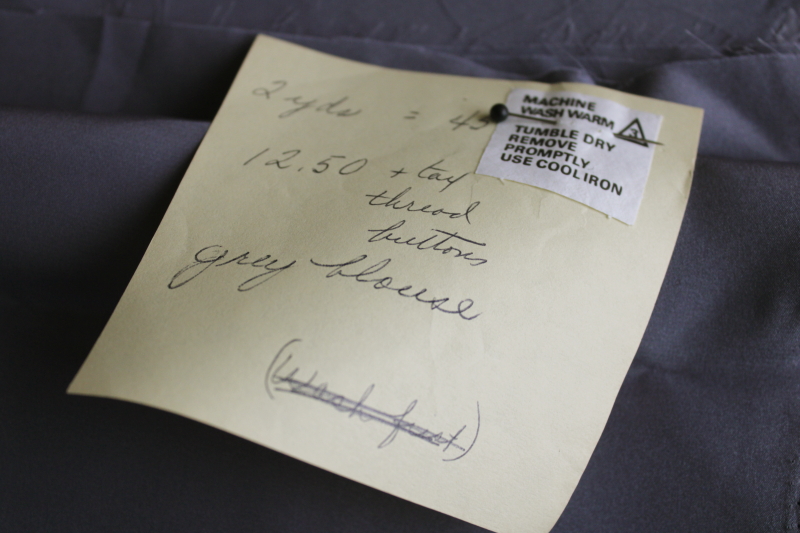 2 yds = 45
12.50 + tax
thread
buttons
grey blouse
(wash first)
MACHINE
WASH WARM
3
TUMBLE DRY
REMOVE
PROMPTLY
USE COOL IRON